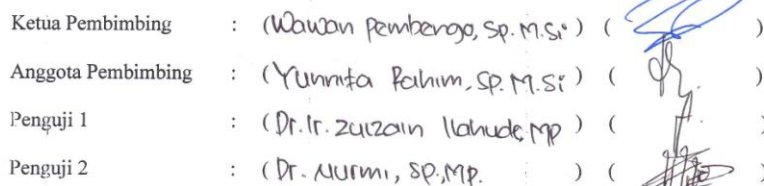 Ketua Pembimbing : (Wawan Pembengo, Sp. M.Si) ( )
Anggota Pembimbing : (Yunnita Rahim, SP. M.Si) ( )
Penguji 1 : (Dr. Ir. Zulzain Ilahude, MP) ( )
Penguji 2 : (Dr. Nurmi, SP.,MP. ) ( )